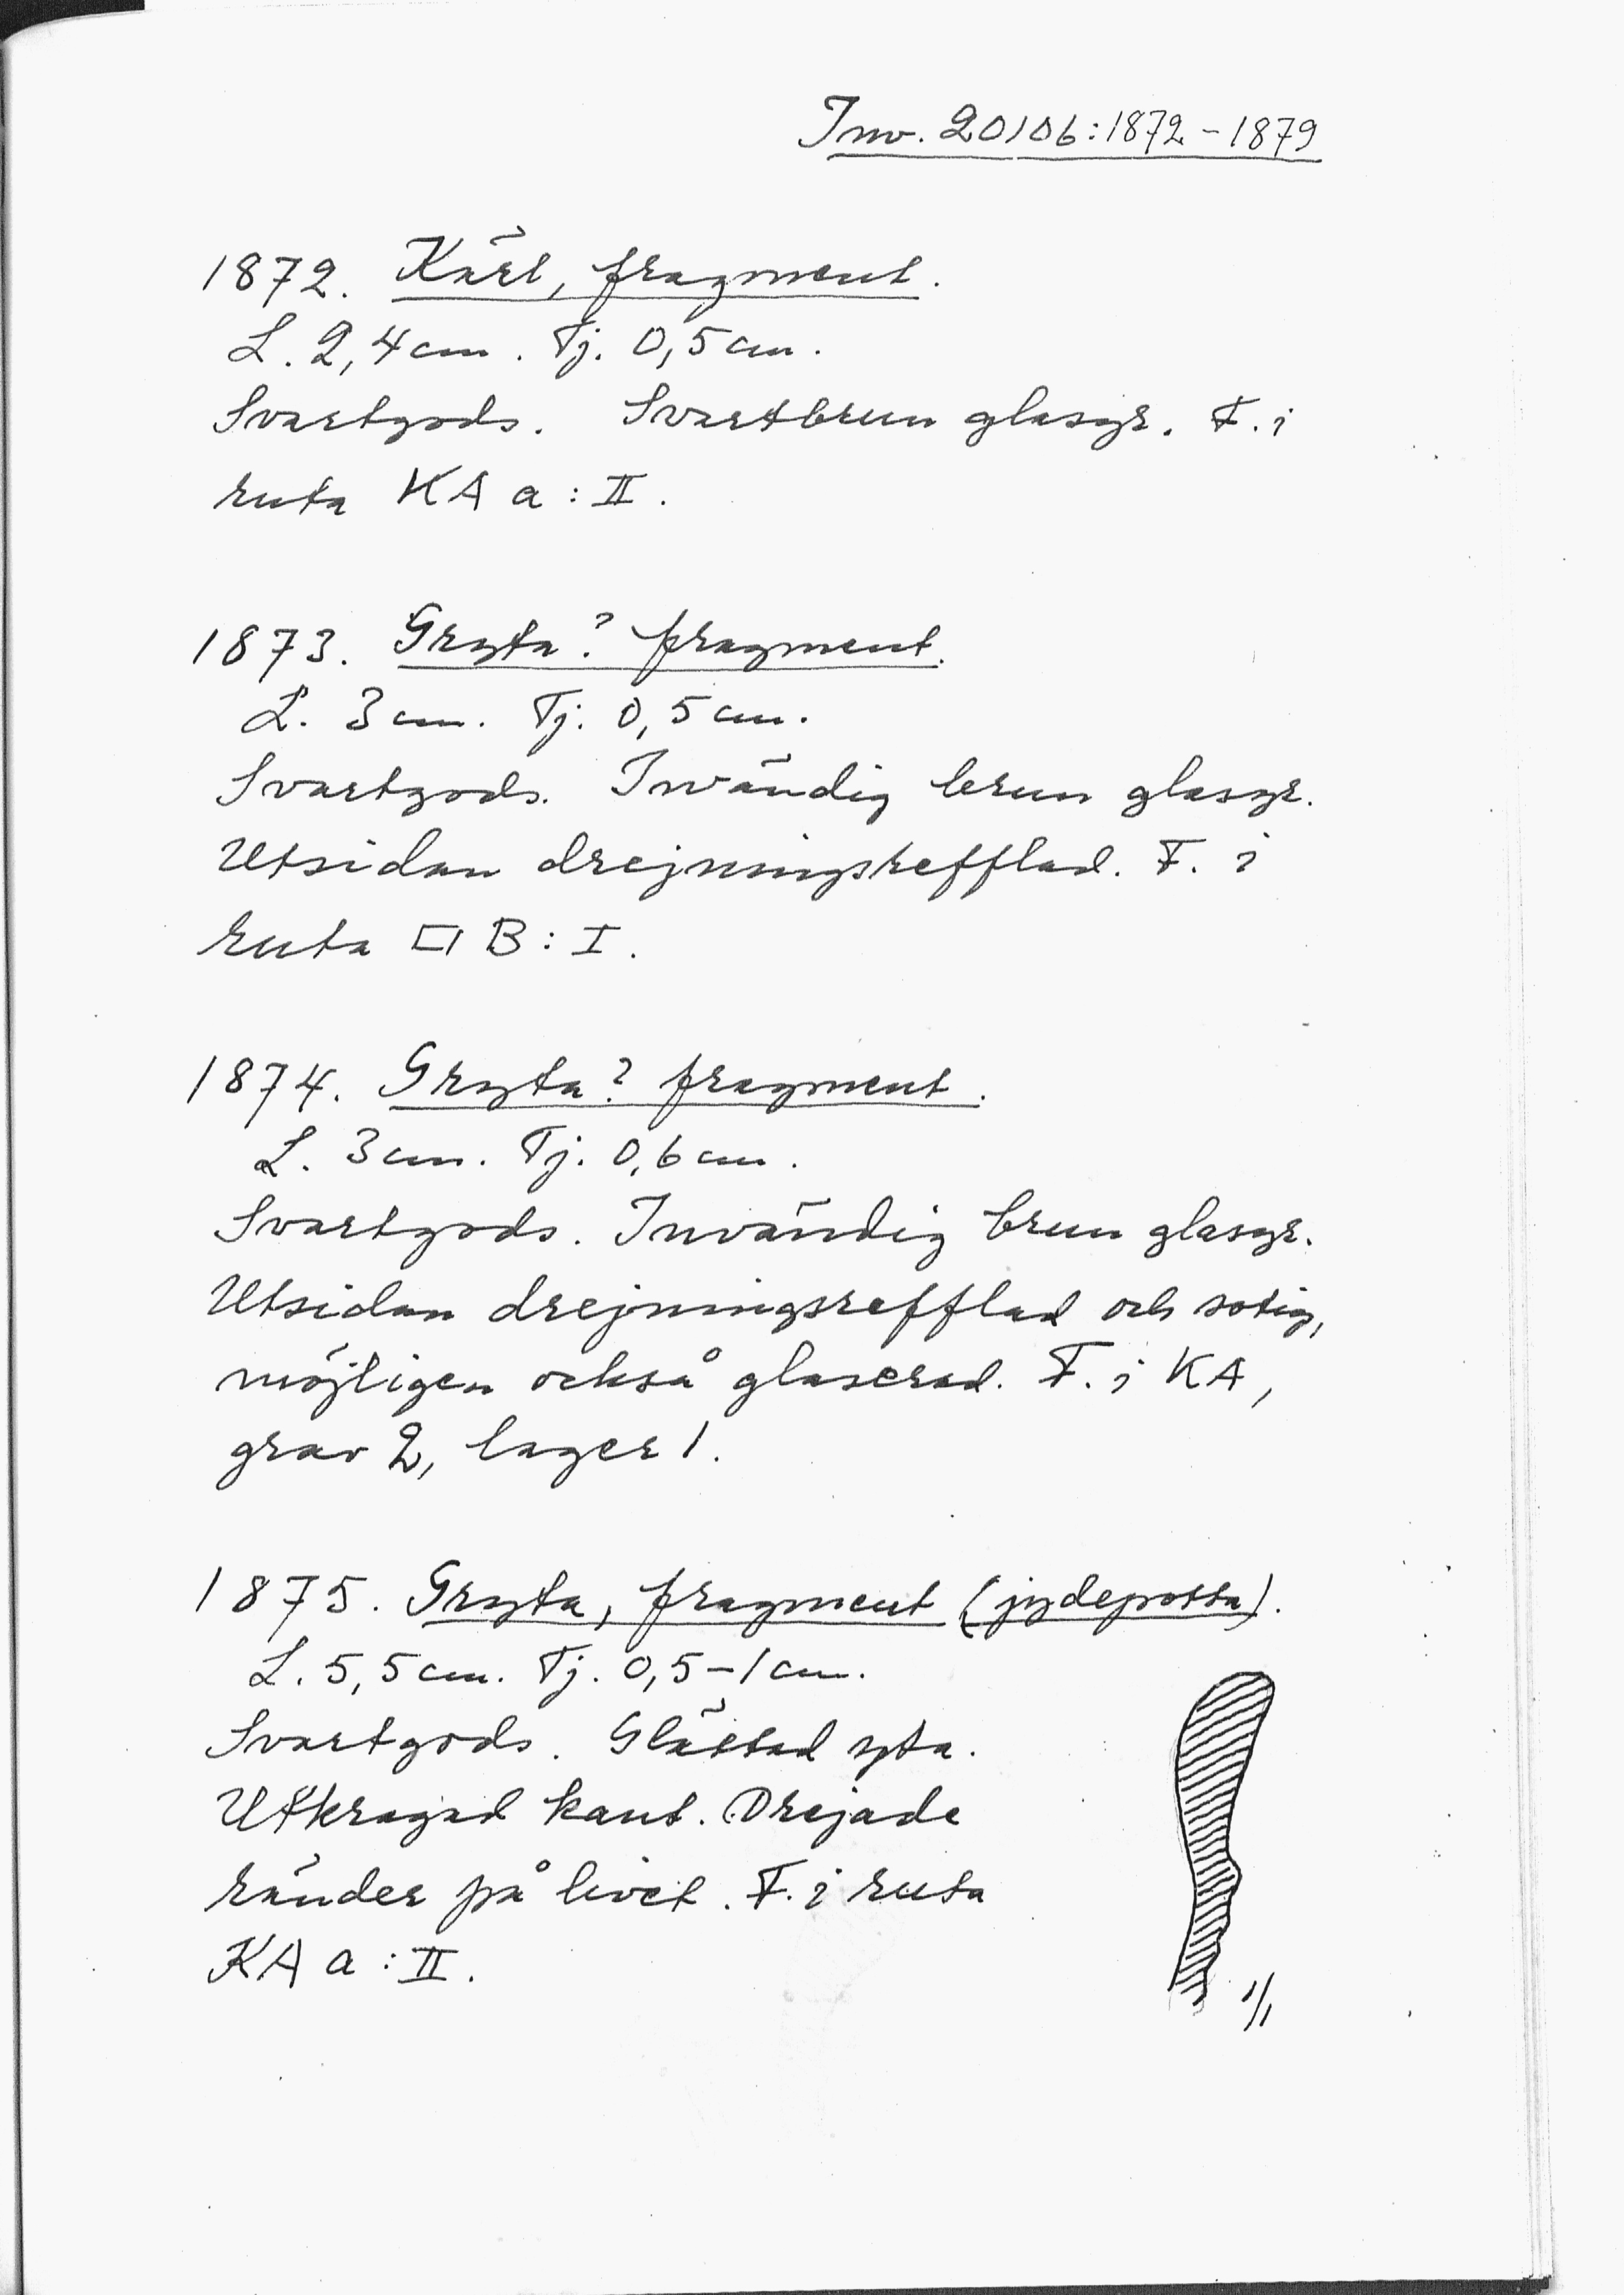 Inv. 20106:1872-1879
1872. Kärl, fragment.
L. 2,4 cm. Tj. 0,5 cm.
Svartgods. Svartbrun glasyr. F. i
ruta KA a : II.
1873. Gryta? fragment.
L. 3 cm. Tj. 0,5 cm.
Svartgods. Invändig brun glasyr.
Utsidan drejningsrefflad. F. i
ruta B : I.
1874. Gryta? fragment.
L. 3 cm. Tj. 0,6 cm.
Svartgods. Invändig brun glasyr.
Utsidan drejningsrefflad och sotig,
möjligen också glaserad. F. i KA,
grav 2, lager 1.
1875. Gryta, fragment (jydepotta).
L. 5,5 cm. Tj. 0,5-1 cm.
Svartgods. Glättad yta.
Utkragad kant. Drejade
ränder på livet. F. i ruta
KA a : II.
1/1